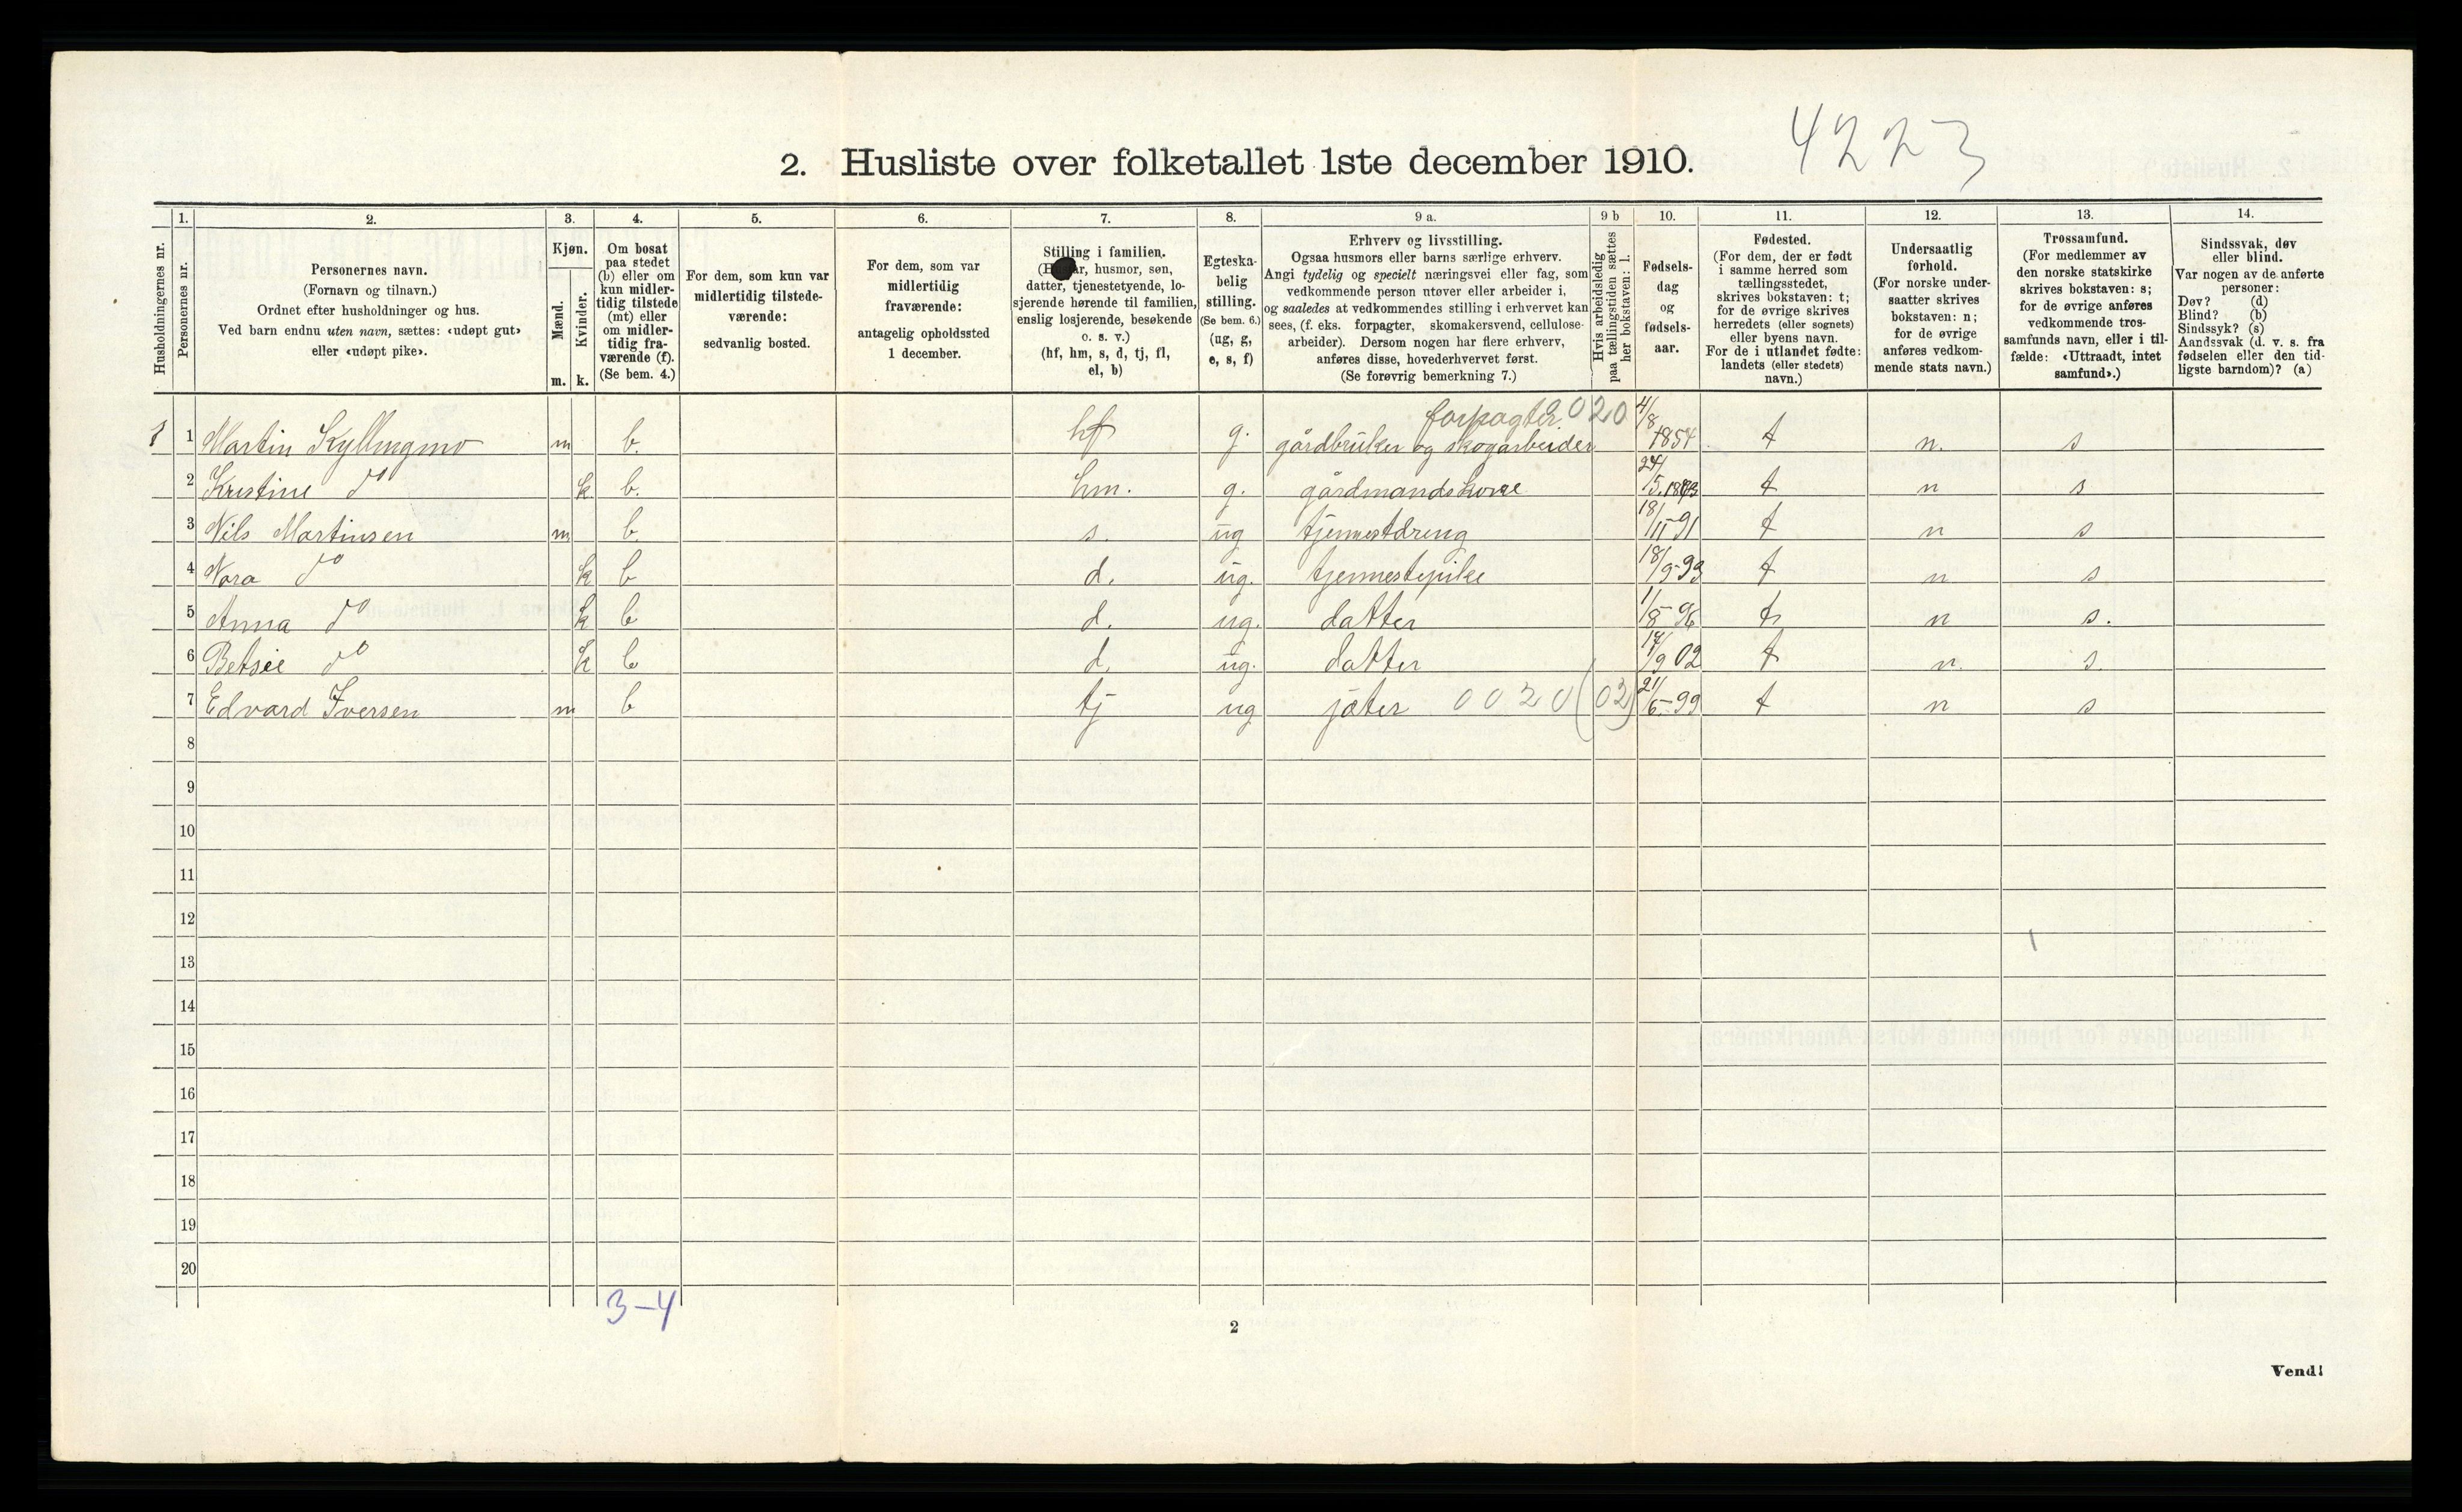 4223
2. Husliste over folketallet 1ste december 1910.
Husholdningernes nr.
1.
Personernes nr.
2.
Personernes navn.
(Fornavn og tilnavn.)
Ordnet efter husholdninger og hus.
Ved barn endnu uten navn, sættes: «udøpt gut»
eller «udøpt pike».
3.
Kjøn.
Mænd.
Kvinder.
m. k.
4.
Om bosat
paa stedet
(b) eller om
kun midler-
tidig tilstede
(mt) eller
om midler-
tidig fra-
værende (f).
(Se bem. 4.)
5.
For dem, som kun var
midlertidig tilstede-
værende:
sedvanlig bosted.
6.
For dem, som var
midlertidig
fraværende:
antagelig opholdssted
1 december.
7.
Stilling i familien.
husmor, søn,
datter, tjenestetyende, lo-
sjerende hørende til familien,
enslig losjerende, besøkende
o. s. v.)
(hf, hm, s, d, tj, fl,
el, b)
8.
Egteska-
belig
stilling.
(Se bem. 6.)
(ug, g,
e, s, f)
9 a.
Erhverv og livsstilling.
Ogsaa husmors eller barns særlige erhverv.
Angi tydelig og specielt næringsvei eller fag, som
vedkommende person utøver eller arbeider i,
og saaledes at vedkommendes stilling i erhvervet kan
sees, (f. eks. forpagter, skomakersvend, cellulose-
arbeider). Dersom nogen har flere erhverv,
anføres disse, hovederhvervet først.
(Se forøvrig bemerkning 7.)
9 b
Hvis arbeidsledig
paa tællingstiden sættes
her bokstaven: l.
10.
Fødsels-
dag
og
fødsels-
aar.
11.
Fødested.
(For dem, der er født
i samme herred som
tællingsstedet,
skrives bokstaven: t;
for de øvrige skrives
herredets (eller sognets)
eller byens navn.
For de i utlandet fødte:
landets (eller stedets)
navn.)
12.
Undersaatlig
forhold.
(For norske under-
saatter skrives
bokstaven: n;
for de øvrige
anføres vedkom-
mende stats navn.)
13.
Trossamfund.
(For medlemmer av
den norske statskirke
skrives bokstaven: s;
for de øvrige anføres
vedkommende tros-
samfunds navn, eller i til-
fælde: «Uttraadt, intet
samfund».)
14.
Sindssvak, døv
eller blind.
Var nogen av de anførte
personer:
Døv? (d)
Blind? (b)
Sindssyk? (s)
Aandssvak (d. v. s. fra
fødselen eller den tid-
ligste barndom)? (a)
forpagter 020
1 1 Martin Kyllingmo m b. hf g. gårdbruker og skogarbeider 4/8 1854 t n. s
2 Kristine do k b. hm. g. gårdmandskone 24/5 t n s
3 Nils Martinsen m b s. ug tjenestdreng 18/11-91 t n s
4 Nora do k b d. ug. tjenestepike 18/9-93 t n s
5 Anna do k b d. ug. datter 1/8-96 t n s.
6 Betsie do k b d. ug. datter 9 02 t n. s.
7 Edvard Iversen m b tj ug jæter 0020 (02) 21/6-99 t n s
8
9
10
11
12
13
14
15
16
17
18
19
20
3-4
2
Vend!